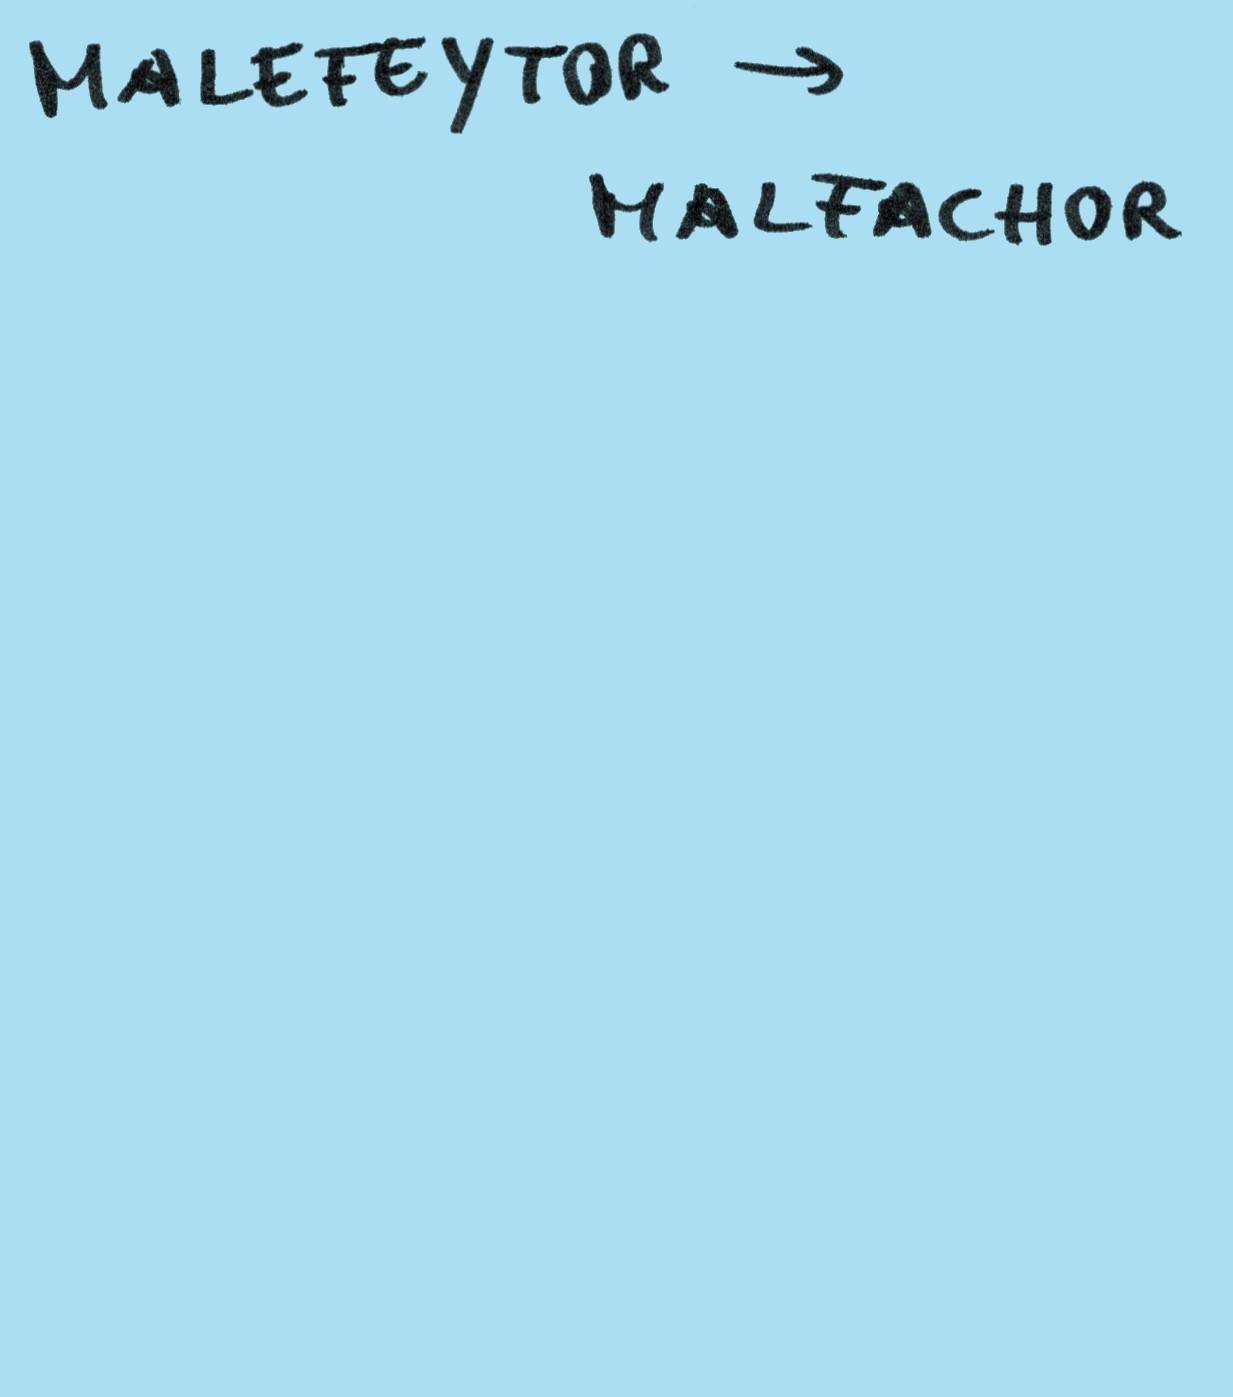 MALEFEYTOR →
MALFACHOR